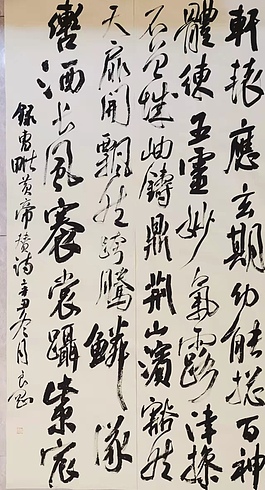 軒轅應玄期幼能摠百神
體練五靈妙氣露津摻
石曾城岫鑄鼎荆山濱豁焉
天扉開飄然跨騰鱗儀
轡洒長風褰裳躡紫宸
錄曹毗黄帝贊詩辛丑冬月良